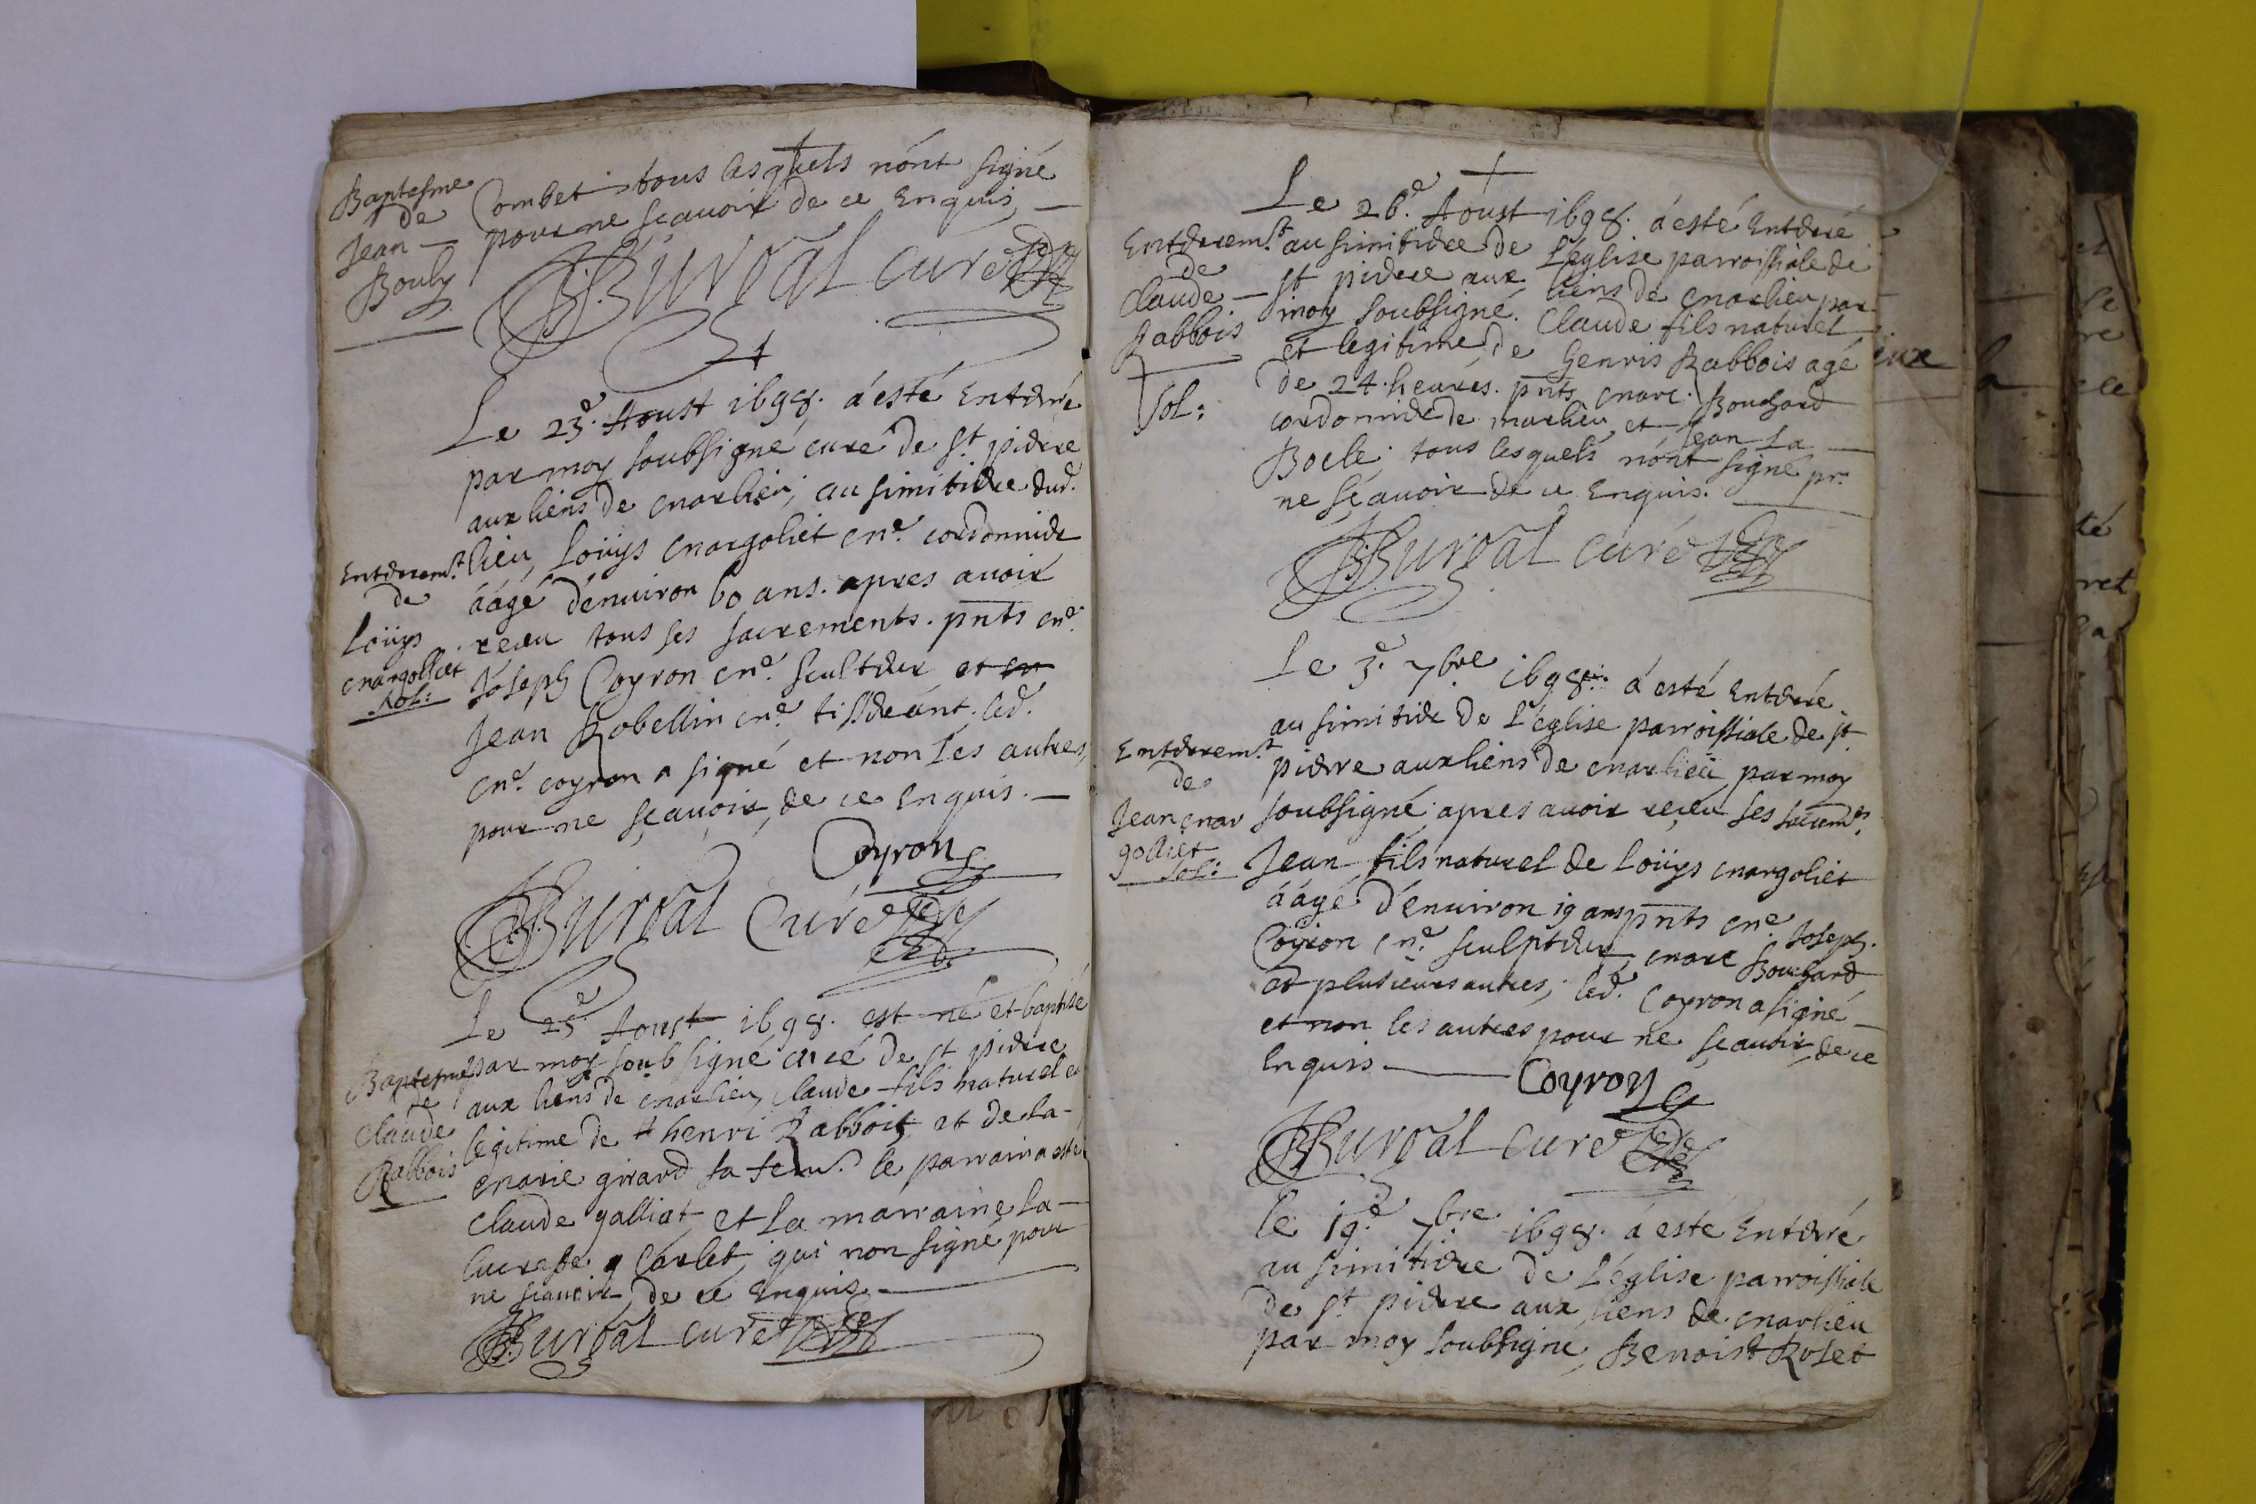 Baptesme
de
Jean
Bouly
Combet tous lesquels nónt signé
pour ne sçauoir de ce Enquis,
BBurdal curé
Le 23e. Aoust 1698. á esté Enterré
par moy soubsigné curé de st. pierre
aux liens de marlieu; au simitiere dud.
lieu, Loüys margoliet me. cordonnier
áágé dénuiron 60 ans. apres auoir
receu tous ses sacrements. pnts me.
Joseph Coyron me. sculteur et
Jean Robellin me. tisserant. led.
me. coyron a signé et non les autres,
pour ne sçauoir, de ce enquis.
Enterremt.
de
Loüys
margolliet
sol:
Coyron
BBurdal Curé
Le 25e. Aoust 1698. est né et baptisé
par moy soub signé curé de st pierre
aux liens de marlieu, claude fils naturel et
legitime de henri Rabbois et de la
marie girard sa fem. le parrain a esté
claude galliat et La marraine la
Lucresse Carlet, qui non signé pour
ne sçauoir, de ce Enquis.
Baptesme
de
Claude
Rabbois
BBurdal curé
Le 26e. Aoust 1698. á esté Enterré
au simitiere de L'église parroissiale de
st pierre aux liens de marlieu par
moy soubsigné. Claude fils naturel
et legitime, de henris Rabbois agé
de 24. heures. pnts marc. Bouchard
cordonnier de marlieu et Jean La
Bocle; tous lesquels nónt signé pr.
ne sçauoir de ce Enquis.
Enterremt.
de
Claude
Rabbois
sol:
BBurdal curé
Le 3e. 7bre 1698. á esté Enterré
au simitier de L'église parroissiale de st.
pierre aux liens de marlieu par moy
soubsigné apres auoir reçeu ses sacremts.
Jean fils naturel de Loüys margoliet
áágé d'enuiron 19 ans pnts me. Joseph.
Coyron me. sculpteur marc Bouchard
et plusieurs autres; led. Coyron a signé
et non les autres pour ne sçauoir, de ce
Enquis
Enterremt.
de
Jean mar
golliet
sol:
Coyron
BBurdal curé
le 19e. 7bre. 1698. á esté Enterré
au simitiere de L'église parroissiale
de st. pierre aux liens de marlieu
par moy soubsigné, Benoist Roset